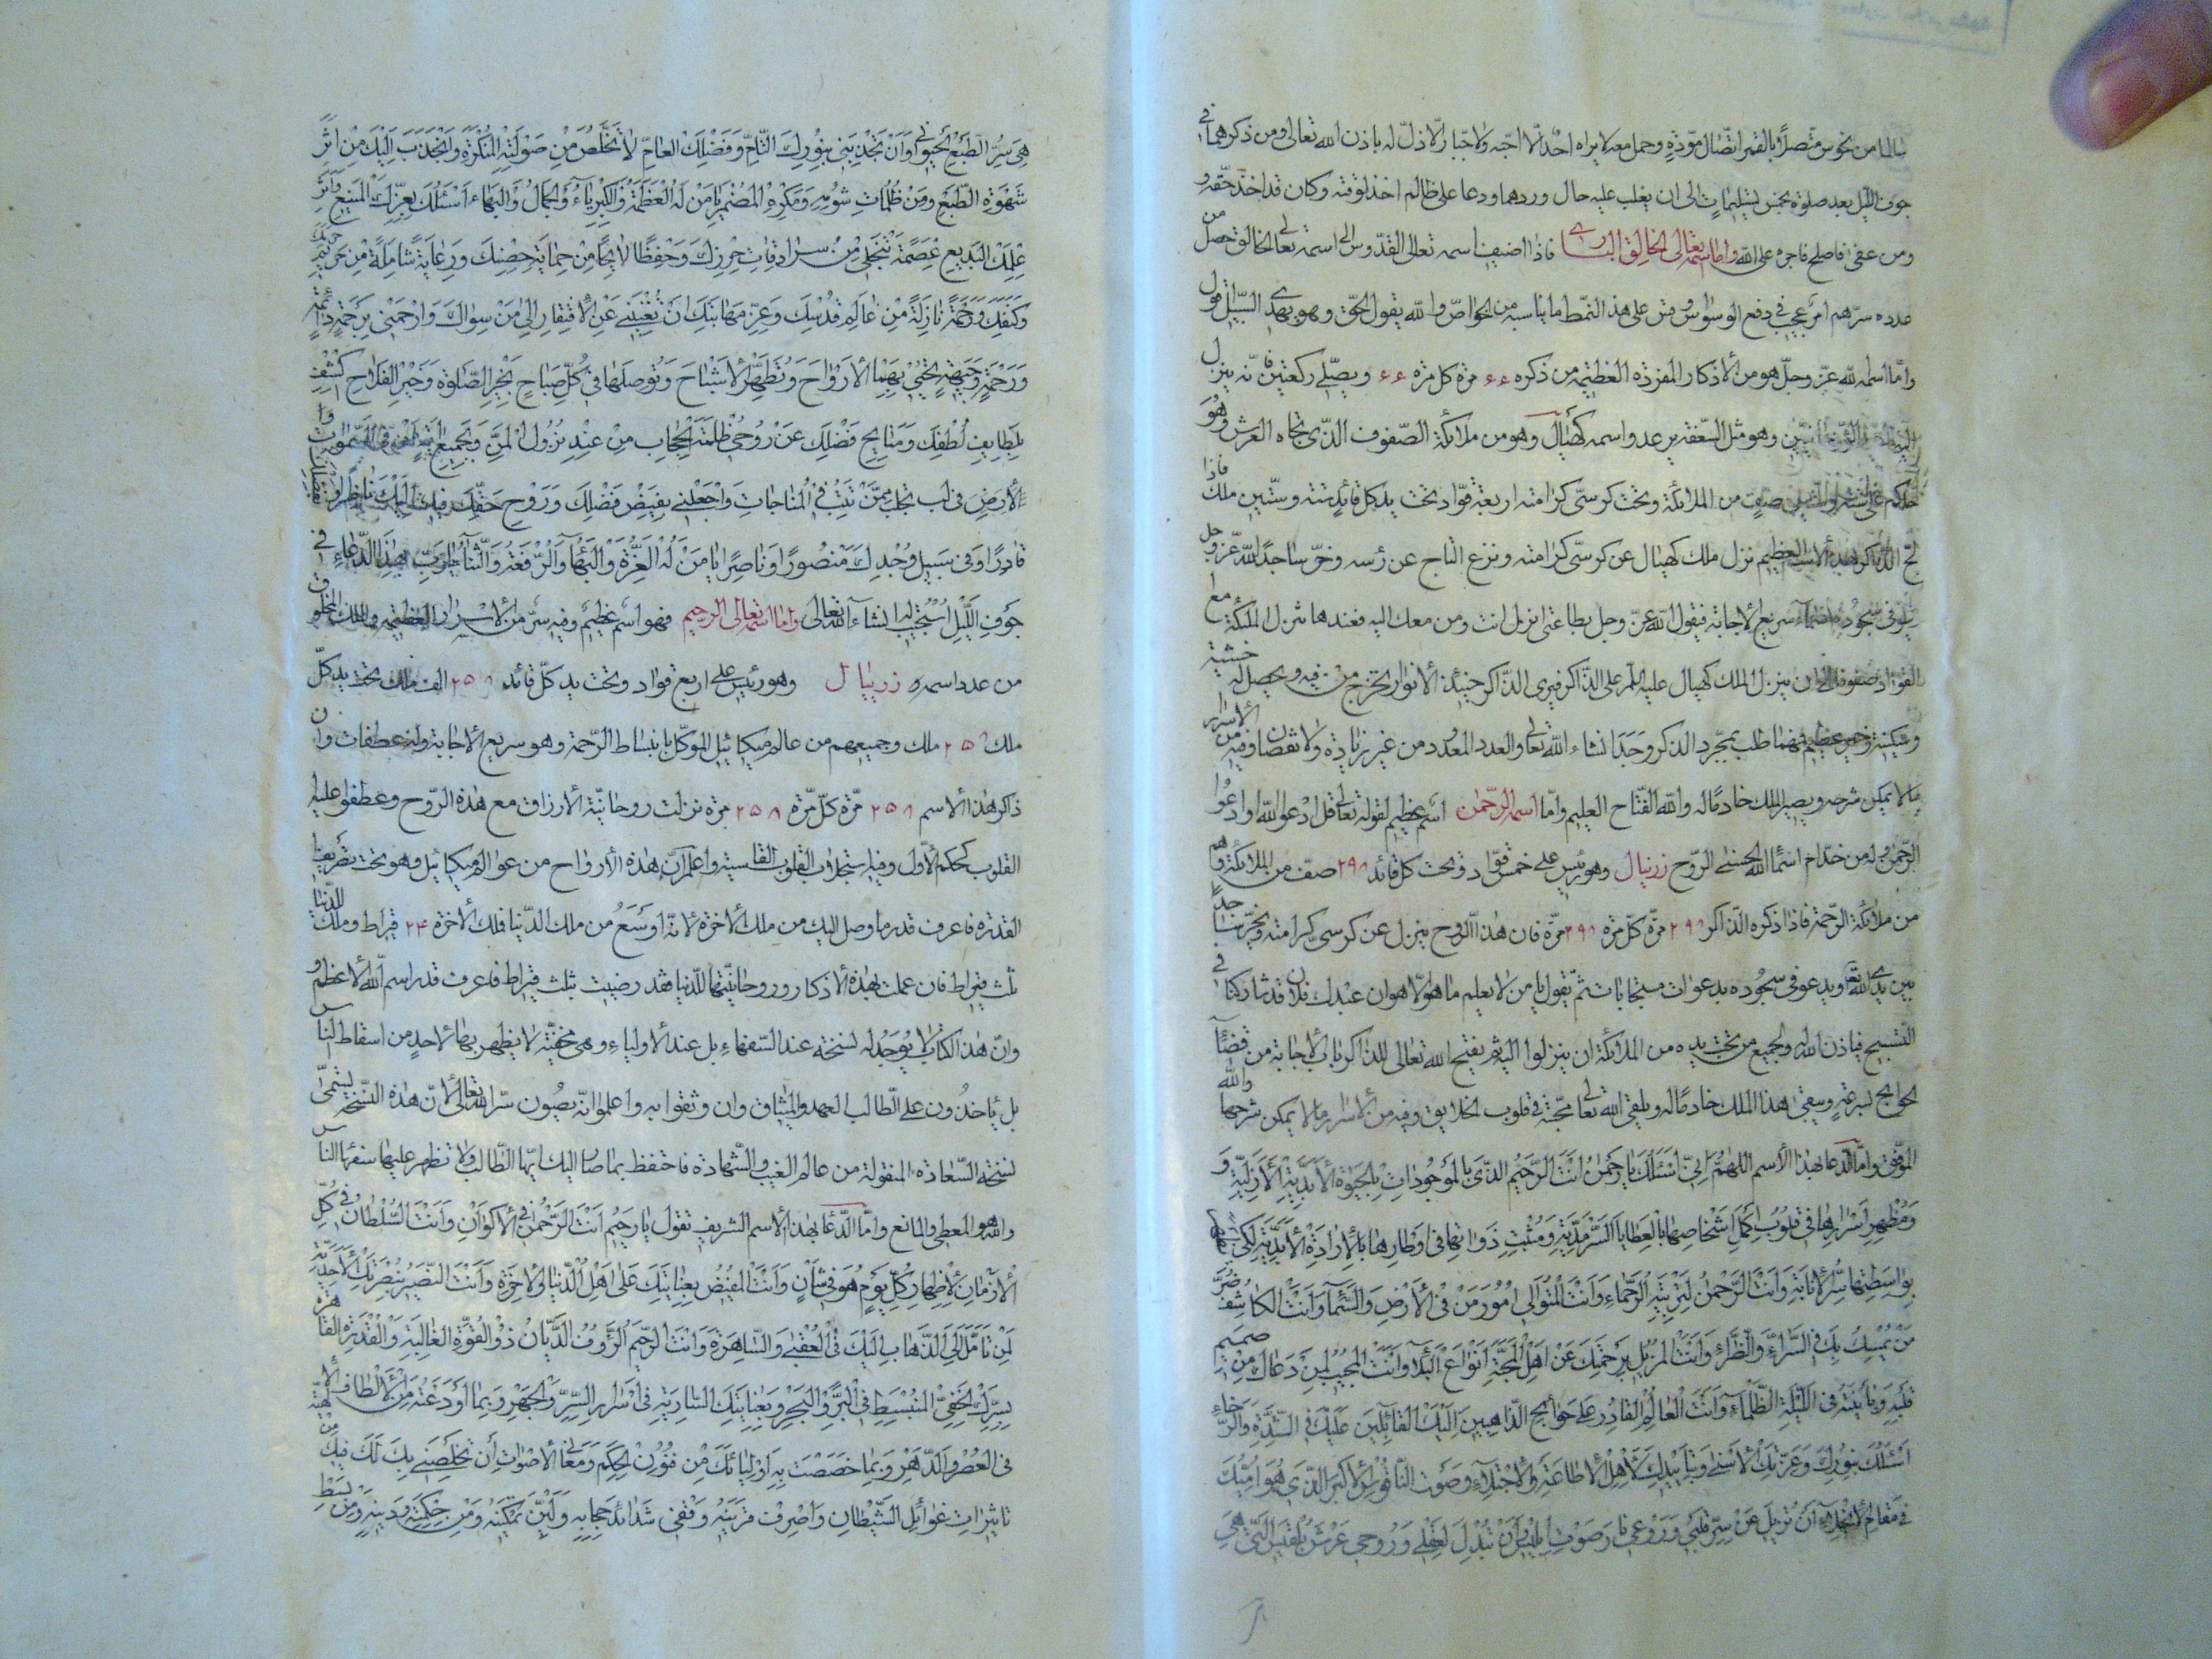 سالما من نحوس متصلا بالقمر اتصال مودة وحمل معه لا يراه احد الا احبه ولا جبار الا ذل له باذن الله تعالى ومن ذكرهما في
جوف الليل بعد صلوة بخمس تسليمات الى ان يغلب عليه حال وردهما ودعا على ظالم اخذ لوقته وكان قد اخذ حقه و
ومن عفى فاصلح فاجره على الله واما اسمه تعالى الخالق البارى فاذا اضيف اسمه تعالى القدوس الى اسمه تعالى الخالق حصل من
عدده سرهم امر عجيب فى دفع الوسواس فقس على هذا النمط ما يناسبه من الخواص والله يقول الحق وهو يهدى السبيل القول
واما اسمه لله عز وجل هو من الاذكار المفردة العظيمة من ذكره ٦٦ مرة كل مرة ٦٦ ويصلى ركعتين فانه ينزل
وهو مثل السعفة يرعد واسمه كهيال وهو من ملائكة الصفوف الذى تجاه العرش وهو
حاكم على صف من الملائكة وتحت كرسى كرامته اربعة قواد تحت يد كل قائد ستة وستين ملك فاذا
لح الذاكر بهذا الاسم العظيم نزل ملك كهيال عن كرسى كرامته ونزع التاج عن رسه وخر ساجدا لله عز وجل
فى سجوده سريع الاجابة فيقول الله عز وجل بطاعتى انزل انت ومن معك اليه فعندها تنزل الملئكة مع
القواد صفوفا الى ان ينزل الملك كهيال عليه السلام على الذاكر فيرى الذاكر حينئذ الانوار تخرج من فيه ويحصل له خشية
وسكينة وخير عظيم فمهما طلب بمجرد الذكر وجد انشاء الله تعالى والعدد المعدود من غير زيادة ولا نقصان وفيه من الاسرار
ما لا يمكن شرحه ويصير الملك خادما له والله الفتاح العليم واما اسمه الرحمن اسم عظيم لقوله تعالى قل ادعوا الله او ادعوا
الرحمن وله من خدام اسماء الله الحسنى الروح زريال وهو رئيس على خمس قواد وتحت كل قائد ٢٩٨ صف من الملائكة وهم
من ملائكة الرحمة فاذا ذكره الذاكر ٢٩٨ مرة كل مرة ٢٩٨ مرة فان هذا الروح ينزل عن كرسى كرامته ويخر ساجدا
بين يدى الله تعالى ويدعو فى سجوده بدعوات مستجابات ثم يقول يا من لا يعلم ما هو الا هو ان عبدك فلان قد شاركنا فى
التسبيح فياذن الله له ولجميع من تحت يده من الملائكة ان ينزلوا اليه ثم يفتح الله تعالى للذاكر باب الاجابة من قضاء
الحوايج بسرعة ويبقى هذا الملك خادما له ويلقى الله تعالى محبته فى قلوب الخلايق وفيه من الاسرار ما لا يمكن شرحها والله
الموفق واما الدعا بهذا الاسم اَللّٰهُمَّ اِنّى اَسْئَلُكَ يا رَحْمٰنُ اَنْتَ الرَّحيمُ الَّذى بِالْمَوْجُوداتِ بِالْحَيٰوةِ الْاَبَدِيَّةِ الْاَزَلِيَّةِ وَ
وَمُظْهِرِ اَسْرارِها فى قُلُوبِ اَكْمَلِ اَشْخاصِها بِالْعَطايا السَّرْمَدِيَّةِ وَمُثْبِتِ ذَواتِها فى اَوْطارِها بِالْاِرادَةِ الْاَبَدِيَّةِ لِكَىْ
بِواسِطَتِها سِرُّ الْاِنابَةِ وَاَنْتَ الرَّحْمٰنُ لِتَرْبِيَةِ الرُّحَماءِ وَاَنْتَ الْمُتَوالى اُمُورَ مَنْ فِى الْاَرْضِ وَالسَّماءِ وَاَنْتَ الْكاشِفُ ضُرَّ
مَنْ يُمْسِكُ بِكَ فِى السَّرّاءِ وَالضَّرّاءِ وَاَنْتَ الْمُزيلُ بِرَحْمَتِكَ عَنْ اَهْلِ الْمَحَبَّةِ اَنْواعَ الْبَلاءِ وَاَنْتَ الْمُجيبُ لِمَنْ دَعاكَ مِنْ صَميمِ
قَلْبِهِ فِى اللَّيْلَةِ الظَّلْماءِ وَاَنْتَ الْعالِمُ الْقادِرُ عَلى حَوائِجِ الذّاهِبينَ اِلَيْكَ الْقائِلينَ عَلَيْكَ فِى الشِّدَّةِ وَالرَّخاءِ
اَسْئَلُكَ بِنُورِكَ وَعِزَّتِكَ الْاَسْنى وَبِتَاْييدِكَ لِاَهْلِ الْاِطاعَةِ وَالْاِجْتِداءِ وَصَوْتِ النّاقُوسِ الْاَكْبَرِ الَّذى هُوَ اَمينُكَ
فى مَقامِ اَنْ تُزيلَ عَنْ سِرّ قَلْبى وَرَوْعى وَاَنْ تُبْدِلَ لِعَقْلى وَرُوحى عَرْشَ بِلْقيسَ الَّتى هِىَ
هِىَ سِرُّ الطَّبْعِ الْحَيَوانى وَاَنْ تَجْذِبَنى بِنُورِكَ التّامِّ وَفَضْلِكَ الْعامِّ لِاَتَخَلَّصَ مِنْ صَوْلَتِهِ الْمُنْكَرَةِ وَاَنْجَذِبَ اِلَيْكَ مِنْ اَثَرِ
شَهْوَةِ الطَّبْعِ وَمِنْ ظُلُماتِ شُومِهِ وَمَكْرِهِ الْمُضْمَرِ يا مَنْ لَهُ الْعَظَمَةُ وَالْكِبْرِياءُ وَالْجَمالُ وَالْبَهاءُ اَسْئَلُكَ بِعِزِّكَ الْمَنيعِ وَاَثَرِ
عِلْمِكَ الْبَديعِ عِصْمَةً تُنْجينى مِنْ سُرادِقاتِ حِرْزِكَ وَحِفْظًا لائِحًا مِنْ حِمايَةِ حِصْنِكَ وَرِعايَةً شامِلَةً مِنْ حَريمِ
وَكَنَفِكَ وَرَحْمَةً نازِلَةً مِنْ عالَمِ قُدْسِكَ وَعِزِّ مَهابَتِكَ اَنْ تُغْنِيَنى عَنِ الْاِفْتِقارِ اِلى مَنْ سِواكَ وَارْحَمْنى بِرَحْمَةٍ دائِمَةٍ
وَرَحْمَةٍ وَجيهَةٍ تُحْيى بِهَا الْاَرْواحَ وَتُطَهِّرُ الْاَشْباحَ وَتُوصِلُها فى كُلِّ صَباحٍ بِخَيْرِ الصَّلٰوةِ وَخَيْرِ الْفَلاحِ كَشْفِ
بِلَطايِفِ لُطْفِكَ وَمَنايِحِ فَضْلِكَ عَنْ رُوحى ظُلْمَةَ الْحِجابِ مِنْ عِنْدِ نُزُولِ الْمَنِّ وَبِجَميعِ فِى السَّمٰواتِ وَا
لْاَرْضِ فِى الْمُناجاتِ وَاجْعَلْنى بِفَيْضِ فَضْلِكَ وَرَوْحِ حَقِّكَ اِلَيْكَ ناظِرًا
قادِرًا وَفى سَبيلِ وُجْدِكَ مَنْصُورًا وَناصِرًا يا مَنْ لَهُ الْعِزَّةُ وَالْبَهاءُ وَالرِّفْعَةُ وَالثَّناءُ يا رَبِّ بِهٰذَا الدُّعاءِ فى
جَوْفِ اللَّيْلِ اُسْتُجيبَ لَهُ انشاء الله تعالى واما اسمه تعالى الرحيم فهو اسم عظيم وفيه سر من الاسرار العظيمة والملك المخلوق
من عدد اسمه زريبال وهو رئيس على اربع قواد وتحت يد كل قائد ٢٥٨ الف ملك تحت يد كل
ملك ٢٥٨ ملك وجميعهم من عالم ميكائيل الموكل بانبساط الرحمة وهو سريع الاجابة وله عطفات وان
ذاكر هذا الاسم ٢٥٨ مرة كل مرة ٢٥٨ مرة نزلت روحانية الارزاق مع هذه الروح وعطفوا عليه
القلوب كحكم الاول وفيه ستجلاب القلوب القاسية واعلم ان هذه الارواح من عوالم ميكائيل وهو تحت تصريف
القدرة فاعرف قدر ما وصل اليك من ملك الاخرة لانه اوسع من ملك الدنيا فلك الاخرة ٢٤ قيراط وملك الدنيا
ثلث قيراط فان عملت بهذه الاذكار وروحانيتها للدنيا فقد رضيت بثلث قيراط فاعرف قدر اسم الله الاعظم و
وان هذا الكتاب لا يوجد له نسخة عند السفهاء بل عند الاولياء وهى مخفية لا يظهر بها لاحد من اسقاط الناس
بل ياخذون على الطالب العهد والميثاق وان وثقوا به واعلموا انه يصون سر الله تعالى لان هذه النسخة تسمى
نسخة السعادة المنقولة من عالم الغيب والشهادة فاحتفظ بما صار اليك ايها الطالب ولا تظهر عليها سفهاء الناس
والله هو المعطى والمانع واما الدعا بهذا الاسم الشريف تقول يا رَحيمُ اَنْتَ الرَّحْمٰنُ فِى الْاَكْوانِ وَاَنْتَ السُّلْطانُ فى كُلِّ
الْاَزْمانِ بِالْاِظْهارِ كُلَّ يَوْمٍ هُوَ فى شَاْنٍ وَاَنْتَ الْمُفيضُ بِعِنايَتِكَ عَلى اَهْلِ الدُّنْيا وَالْاٰخِرَةِ وَاَنْتَ النَّصيرُ بِنُصْرَتِكَ الْاَحَدِيَّةِ
لِمَنْ تَاَمَّلَ اِلَى الذَّهابِ اِلَيْكَ فِى الْعُقْبى وَالسّاهِرَةِ وَاَنْتَ الرَّحيمُ الرَّؤُفُ الدَّيّانُ ذُو الْقُوَّةِ الْغالِبَةِ وَالْقُدْرَةِ الْقاهِرَةِ
بِسِرِّكَ الْخَفِىِّ الْمُنْبَسِطِ فِى الْبَرِّ وَالْبَحْرِ وَبِعِنايَتِكَ السّارِيَةِ فى اَسْرارِ السِّرِّ وَالْجَهْرِ وَبِما اَوْدَعْتَهُ مِنَ الْاَلْطافِ الْاِلٰهِيَّةِ
فِى الْعَصْرِ وَالدَّهْرِ وَبِما خَصَصْتَ بِهِ اَوْلِيائَكَ مِنْ فُنُونِ الْحِكَمِ وَمَعانِى الْاَصْواتِ اَنْ تُخَلِّصَنى بِكَ لَكَ فيكَ مِنْ
تاثيراتِ غَوائِلِ الشَّيْطانِ وَاصْرِفْ قَرينَهُ وَقِنى شَدائِدَ حِجابِهِ وَمِنْ بَسْطِ